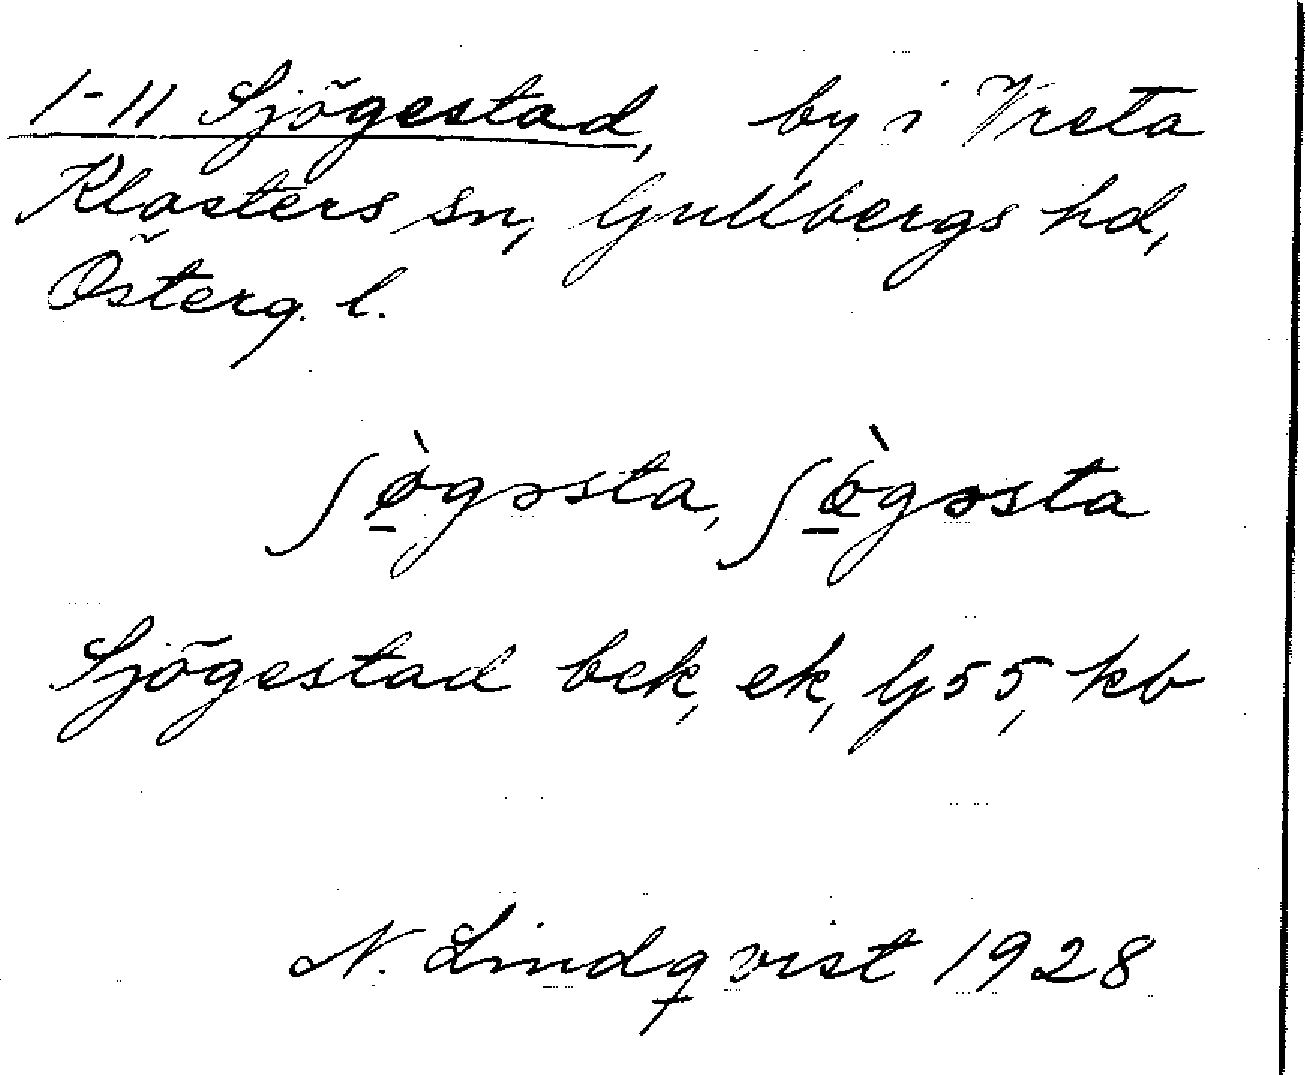 1-11 Sjögestad, by i Vreta
Klosters sn, Gullbergs hd,
Österg. l.
ʃø̠̀gəsta, ʃø̠̀gəsta
Sjögestad bek, ek, G55, kb
N. Lindqvist 1928